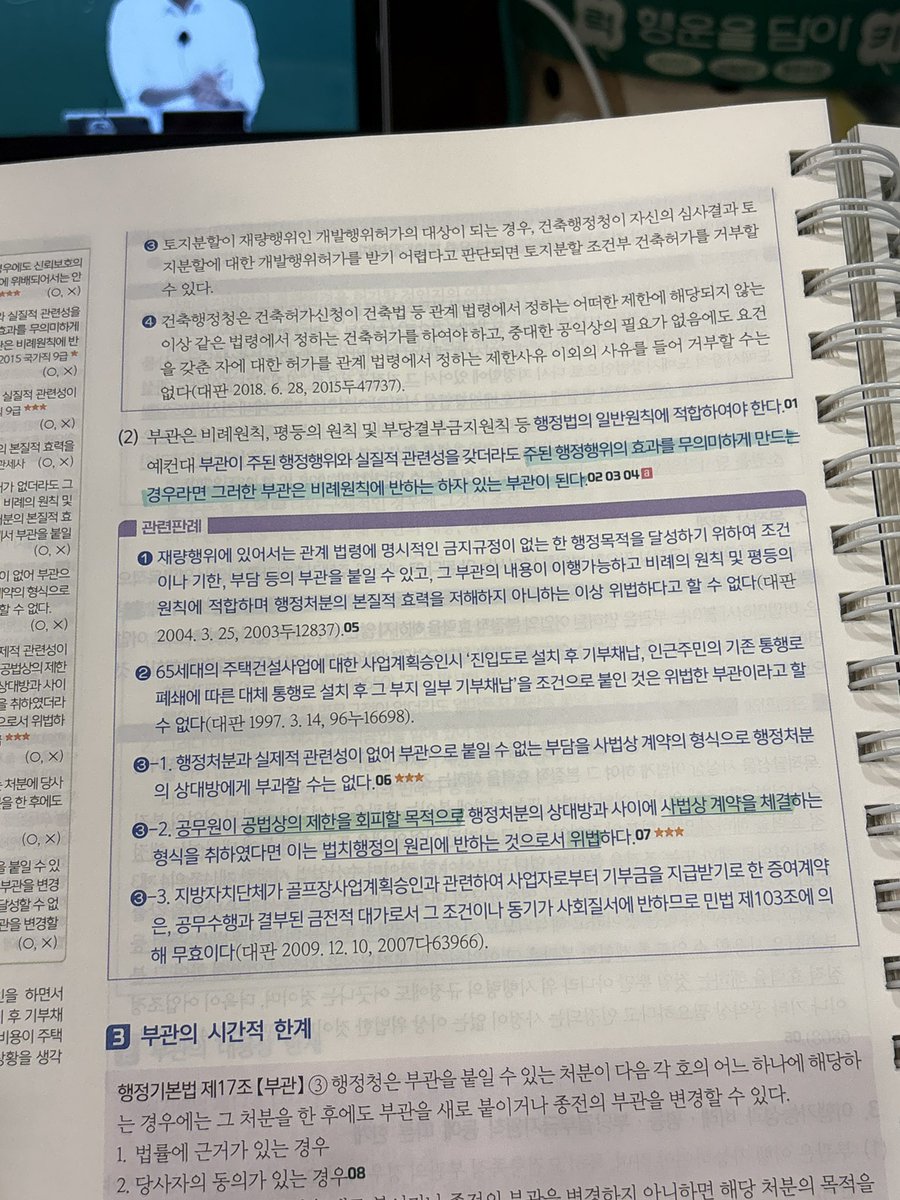 행운을 담아
우에도 신뢰보호의
에 위배되어서는 안
★★★ (O, X)
와 실질적 관련성을
효과를 무의미하게
은 비례원칙에 반
2015 국가직 9급 ★
(O, X)
실질적 관련성이
9급 ★★★
(O, X)
의 본질적 효력을
관세사 (O, X)
거가 없더라도 그
비례의 원칙 및
처분의 본질적 효
서 부관을 붙일
(O, X)
이 없어 부관으
계약의 형식으로
할 수 없다.
(O, X)
제적 관련성이
공법상의 제한
상대방과 사이
을 취하였더라
으로서 위법하
★★★
(O, X)
는 처분에 당사
을 한 후에도
(O, X)
붙일 수 있
부관을 변경
달성할 수 없
관을 변경할
(O, X)
인을 하면서
치 후 기부채
비용이 주택
상황을 생각
❸ 토지분할이 재량행위인 개발행위허가의 대상이 되는 경우, 건축행정청이 자신의 심사결과 토
지분할에 대한 개발행위허가를 받기 어렵다고 판단되면 토지분할 조건부 건축허가를 거부할
수 있다.
❹ 건축행정청은 건축허가신청이 건축법 등 관계 법령에서 정하는 어떠한 제한에 해당되지 않는
이상 같은 법령에서 정하는 건축허가를 하여야 하고, 중대한 공익상의 필요가 없음에도 요건
을 갖춘 자에 대한 허가를 관계 법령에서 정하는 제한사유 이외의 사유를 들어 거부할 수는
없다(대판 2018. 6. 28, 2015두47737).
(2) 부관은 비례원칙, 평등의 원칙 및 부당결부금지원칙 등 행정법의 일반원칙에 적합하여야 한다.01
예컨대 부관이 주된 행정행위와 실질적 관련성을 갖더라도 주된 행정행위의 효과를 무의미하게 만드는
경우라면 그러한 부관은 비례원칙에 반하는 하자 있는 부관이 된다.02 03 04 a
관련판례
❶ 재량행위에 있어서는 관계 법령에 명시적인 금지규정이 없는 한 행정목적을 달성하기 위하여 조건
이나 기한, 부담 등의 부관을 붙일 수 있고, 그 부관의 내용이 이행가능하고 비례의 원칙 및 평등의
원칙에 적합하며 행정처분의 본질적 효력을 저해하지 아니하는 이상 위법하다고 할 수 없다(대판
2004. 3. 25, 2003두12837).05
❷ 65세대의 주택건설사업에 대한 사업계획승인시 '진입도로 설치 후 기부채납, 인근주민의 기존 통행로
폐쇄에 따른 대체 통행로 설치 후 그 부지 일부 기부채납'을 조건으로 붙인 것은 위법한 부관이라고 할
수 없다(대판 1997. 3. 14, 96누16698).
❸-1. 행정처분과 실제적 관련성이 없어 부관으로 붙일 수 없는 부담을 사법상 계약의 형식으로 행정처분
의 상대방에게 부과할 수는 없다.06 ★★★
❸-2. 공무원이 공법상의 제한을 회피할 목적으로 행정처분의 상대방과 사이에 사법상 계약을 체결하는
형식을 취하였다면 이는 법치행정의 원리에 반하는 것으로서 위법하다.07 ★★★
❸-3. 지방자치단체가 골프장사업계획승인과 관련하여 사업자로부터 기부금을 지급받기로 한 증여계약
은, 공무수행과 결부된 금전적 대가로서 그 조건이나 동기가 사회질서에 반하므로 민법 제103조에 의
해 무효이다(대판 2009. 12. 10, 2007다63966).
3 부관의 시간적 한계
행정기본법 제17조【부관】③ 행정청은 부관을 붙일 수 있는 처분이 다음 각 호의 어느 하나에 해당하
는 경우에는 그 처분을 한 후에도 부관을 새로 붙이거나 종전의 부관을 변경할 수 있다.
1. 법률에 근거가 있는 경우
2. 당사자의 동의가 있는 경우08
종전의 부관을 변경하지 아니하면 해당 처분의 목적을